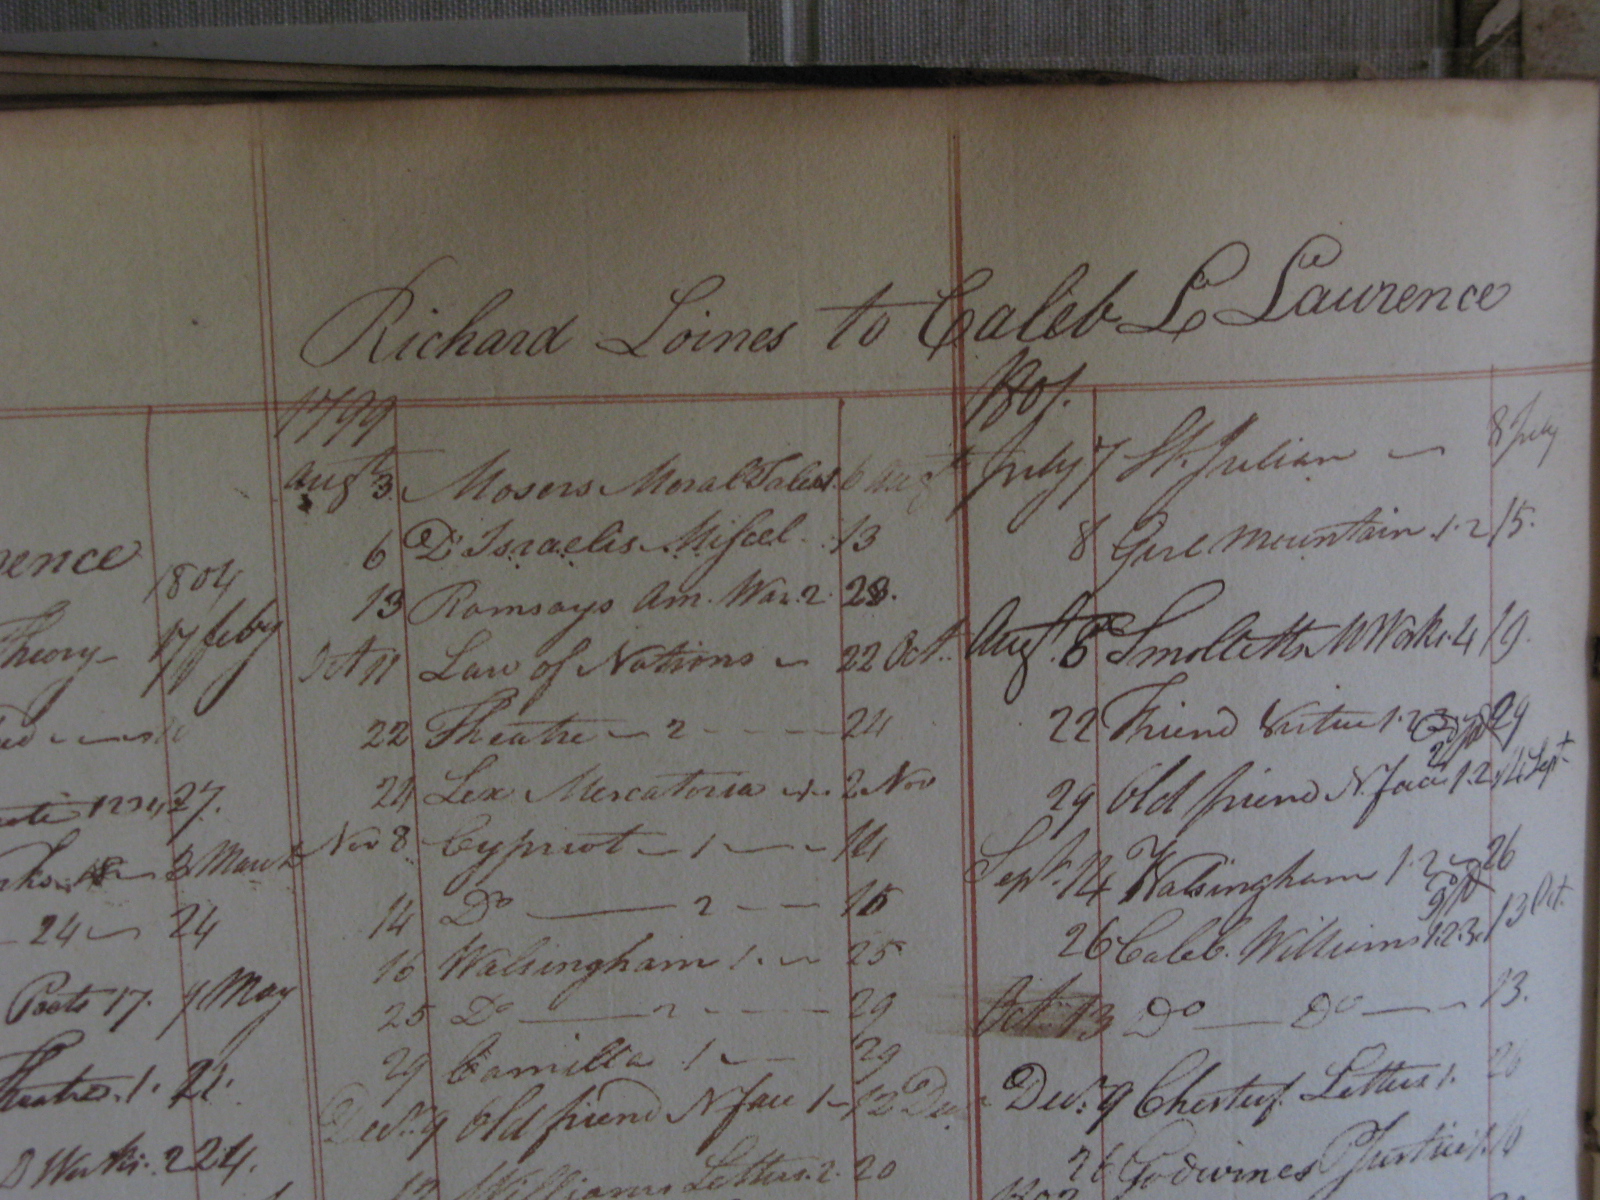 Richard Loines to Caleb L Lawrence
rence
1804
Theory 17 feby
27.
3 March
24 24
Poets 17. 7 May
Theatre. 1. 22.
D Works. 2 24.
1799
Augt 3. Mosers Moral Tales 1. 6 Augt
6 D'Israelis Miscel. 13
13 Ramsays Am. War. 2. 28.
Oct 11 Law of Nations 22 Oct.
22 Theatre 2 24
24 Lex Mercatoria 2 Nov
Nov 8 Cypriot 1 14
14 Do 2 16
16 Walsingham 1. 25
25 Do 2 29
29 Camilla 1 29
Decr. 9 Old friend N face 1 12 Dec
Williams Letters. 2. 20
1801.
July 7 St. Julian 8 July
8 Gree Mountain 1. 2 15.
Augt. 8 Smolletts M Works. 4 19.
22 Friend Virtue 1. 2 29
29 Old friend N face 1. 2 14 Sept
Sept. 14 Walsingham 1. 2 26
26 Caleb. Williams 1.2.3. 13 Oct.
Oct. 13 Do Do 13.
Decr. 9 Chesterf. Letters 1. 26
26 Godwines P Justice 1.